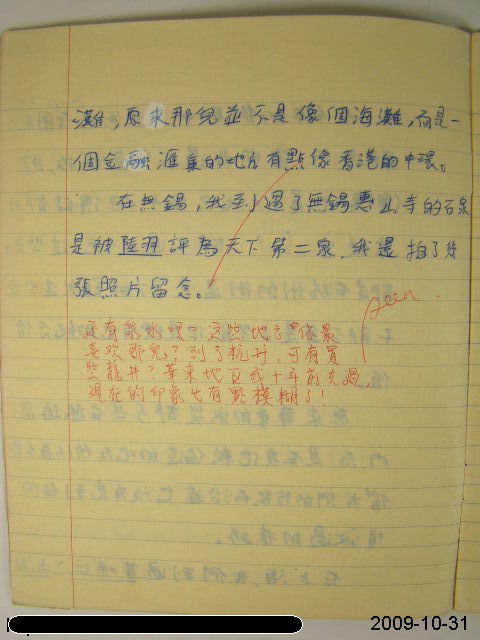 灘，原來那兒並不是像個海灘，而是一
個金融滙集的地方有點像香港的中環。
在無錫，我到過了無錫惠山寺的石泉
是被陸羽評為天下第二泉，我還拍了幾
張照片留念。
Seen.
還有泉水嗎？這些地方你最
喜欢那兒？到了杭州，可有買
些龍井？華東地區我十年前去過，
現在的印象也有點模糊了！
2009-10-31